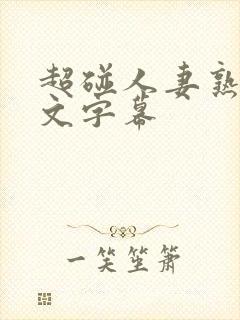 超碰人妻熟
文字幕
一笑坐箫